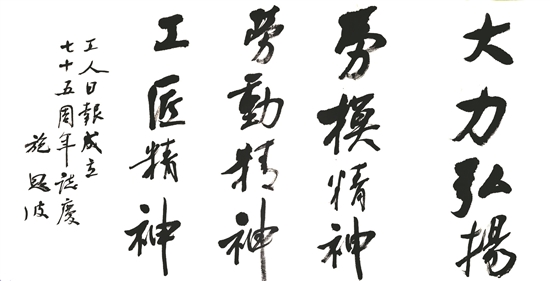 大力弘揚
勞模精神
勞動精神
工匠精神
工人日報成立
七十五周年誌慶
施恩波